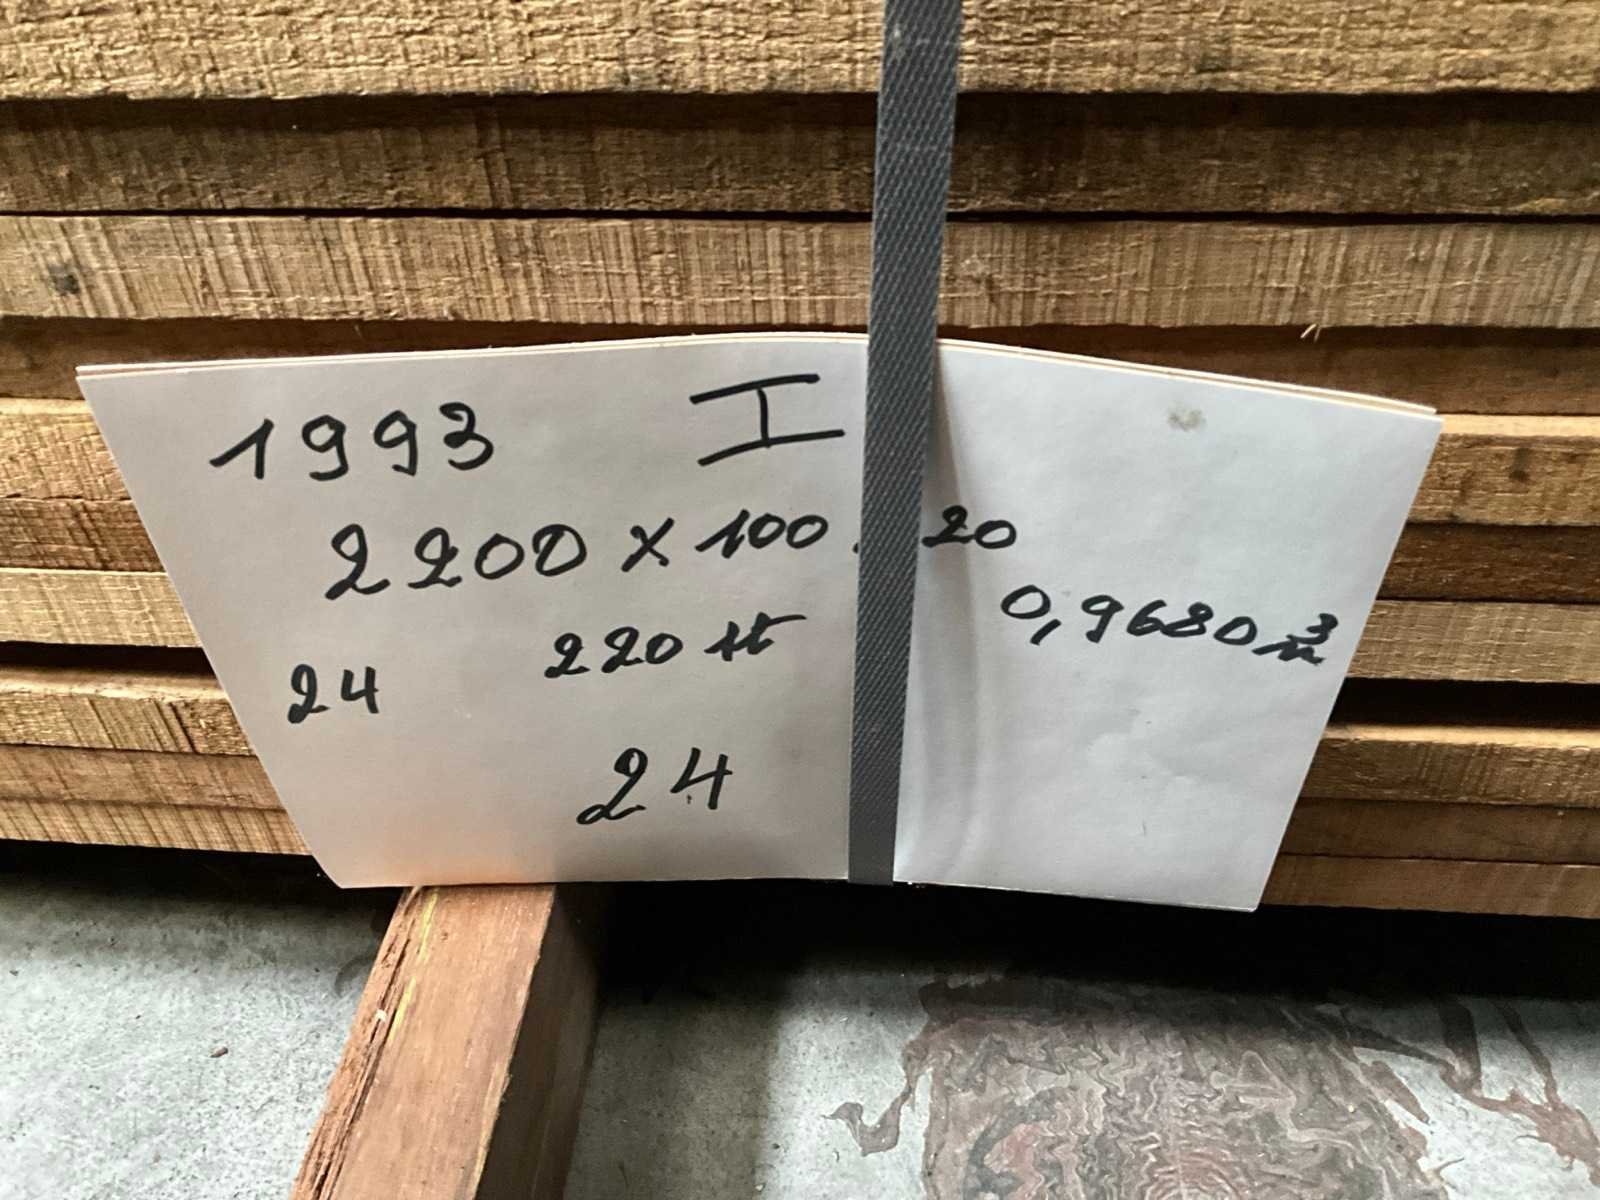 1993 I
2200 x 100 . 20
0,9680 m³
220 st
24
24